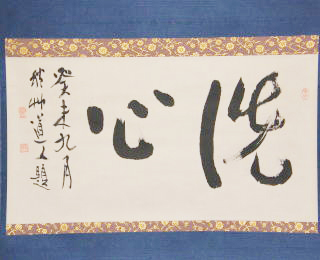 洗心
癸未九月
道人題